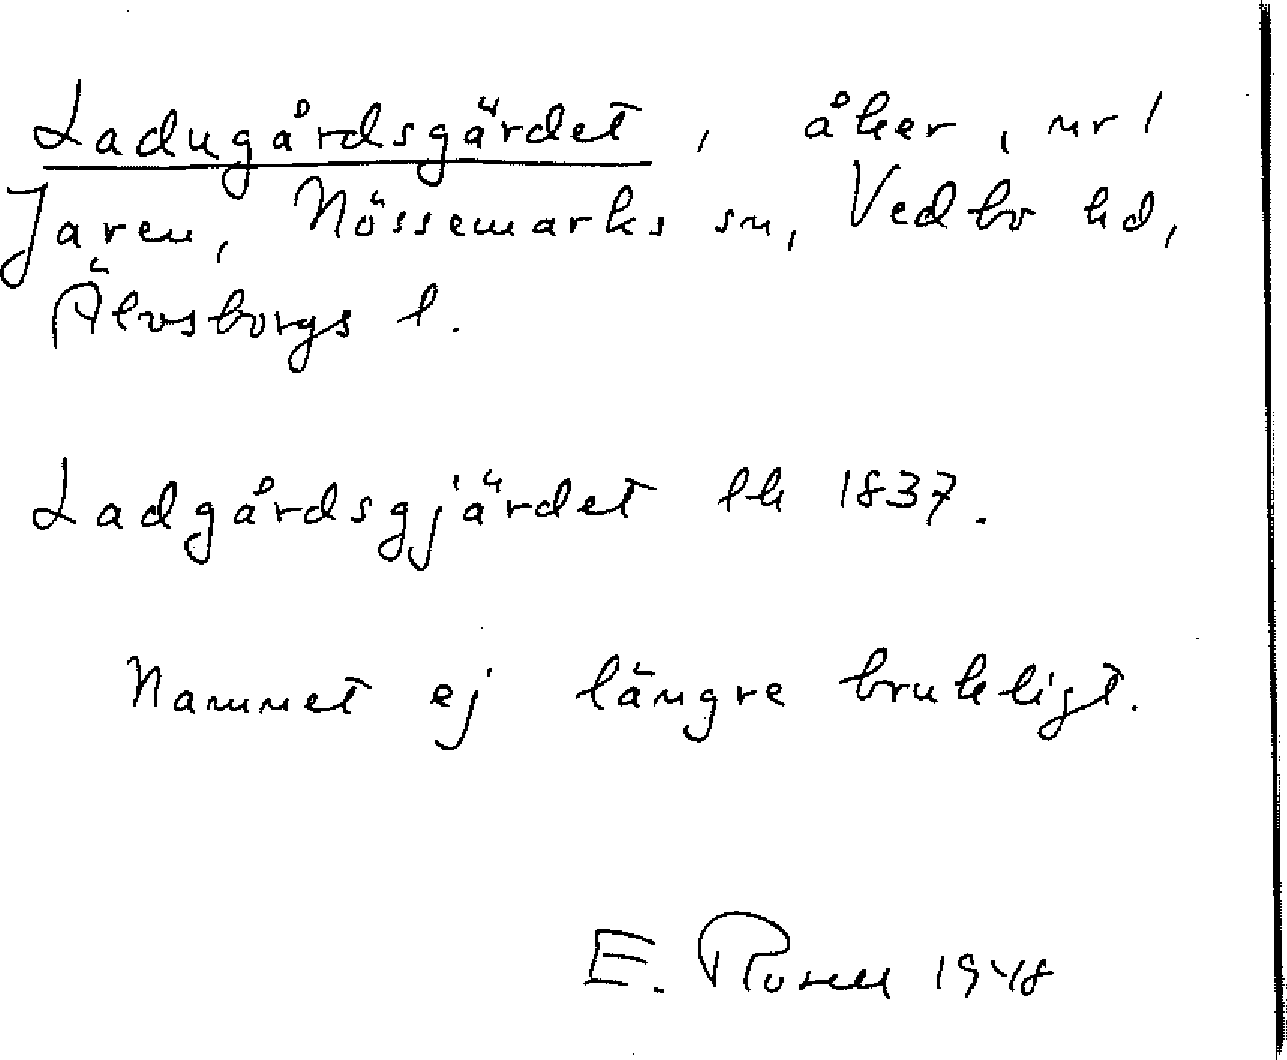 Ladugårdsgärdet, åker, nr 1
Jaren, Nössemarks sn, Vedbo hd,
Älvsborgs l.
Ladgårdsgjärdet lk 1837.
Namnet ej längre brukligt.
E. Rosell 1948